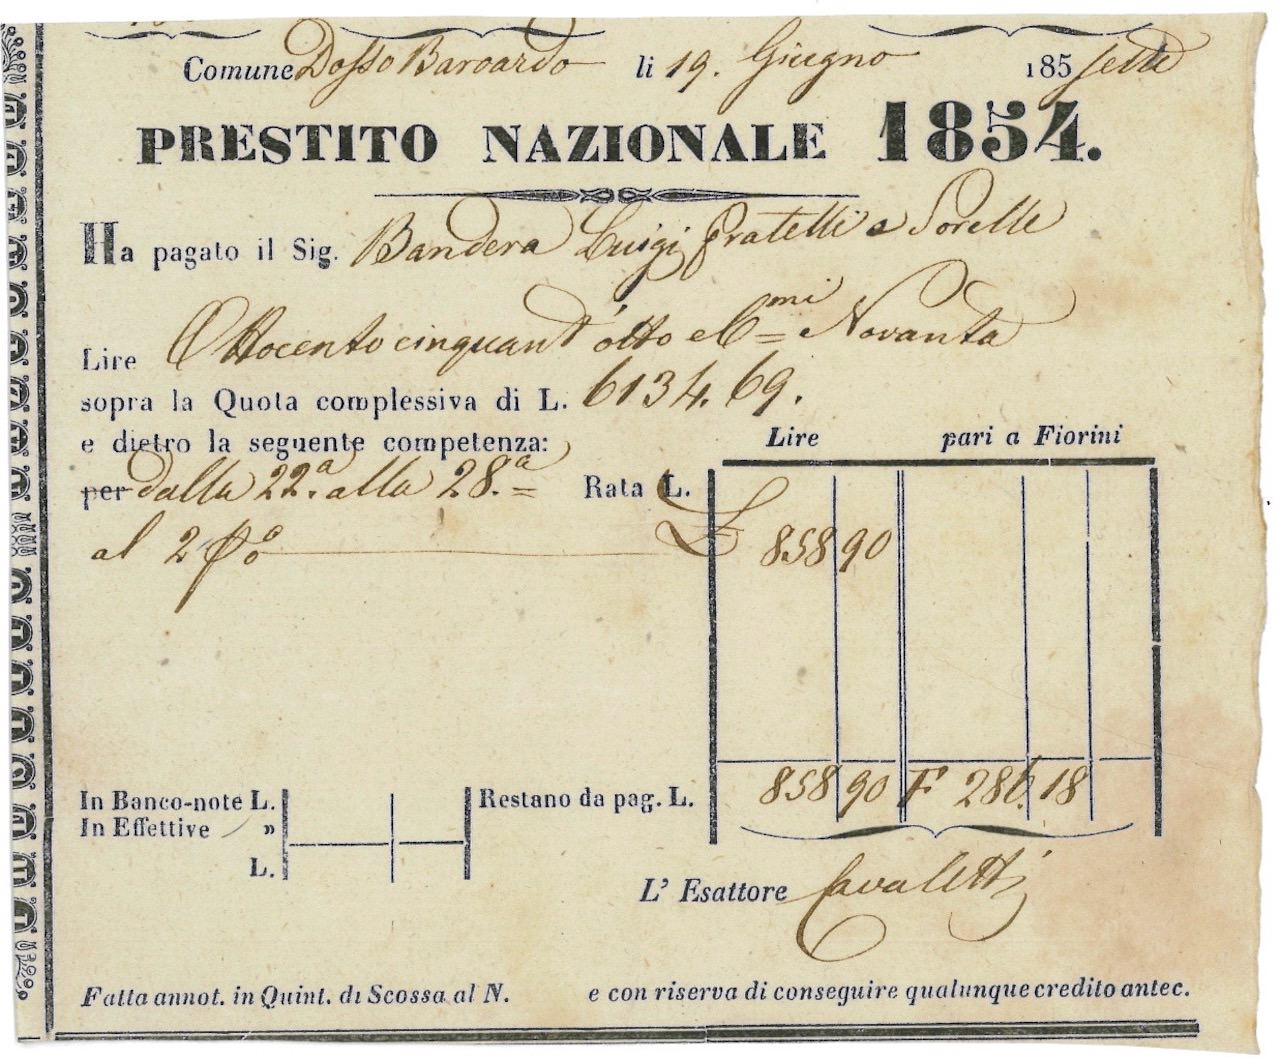 Comune Dosso Baroardo li 19. Giugno 185 sette
PRESTITO NAZIONALE 1854.
Ha pagato il Sig. Bandera Luigi fratelli e Sorelle
Lire Ottocento cinquant'otto e C=mi Novanta
sopra la Quota complessiva di L. 6134.69.
e dietro la seguente competenza:
Lire pari a Fiorini
per dalla 22.a alla 28.a = Rata L.
al 2 £ 858 90
In Banco-note L. Restano da pag. L. 858 90 F 286 18
In Effettive »
L.
L' Esattore Cavaletti
Fatta annot. in Quint. di Scossa al N. e con riserva di conseguire qualunque credito antec.